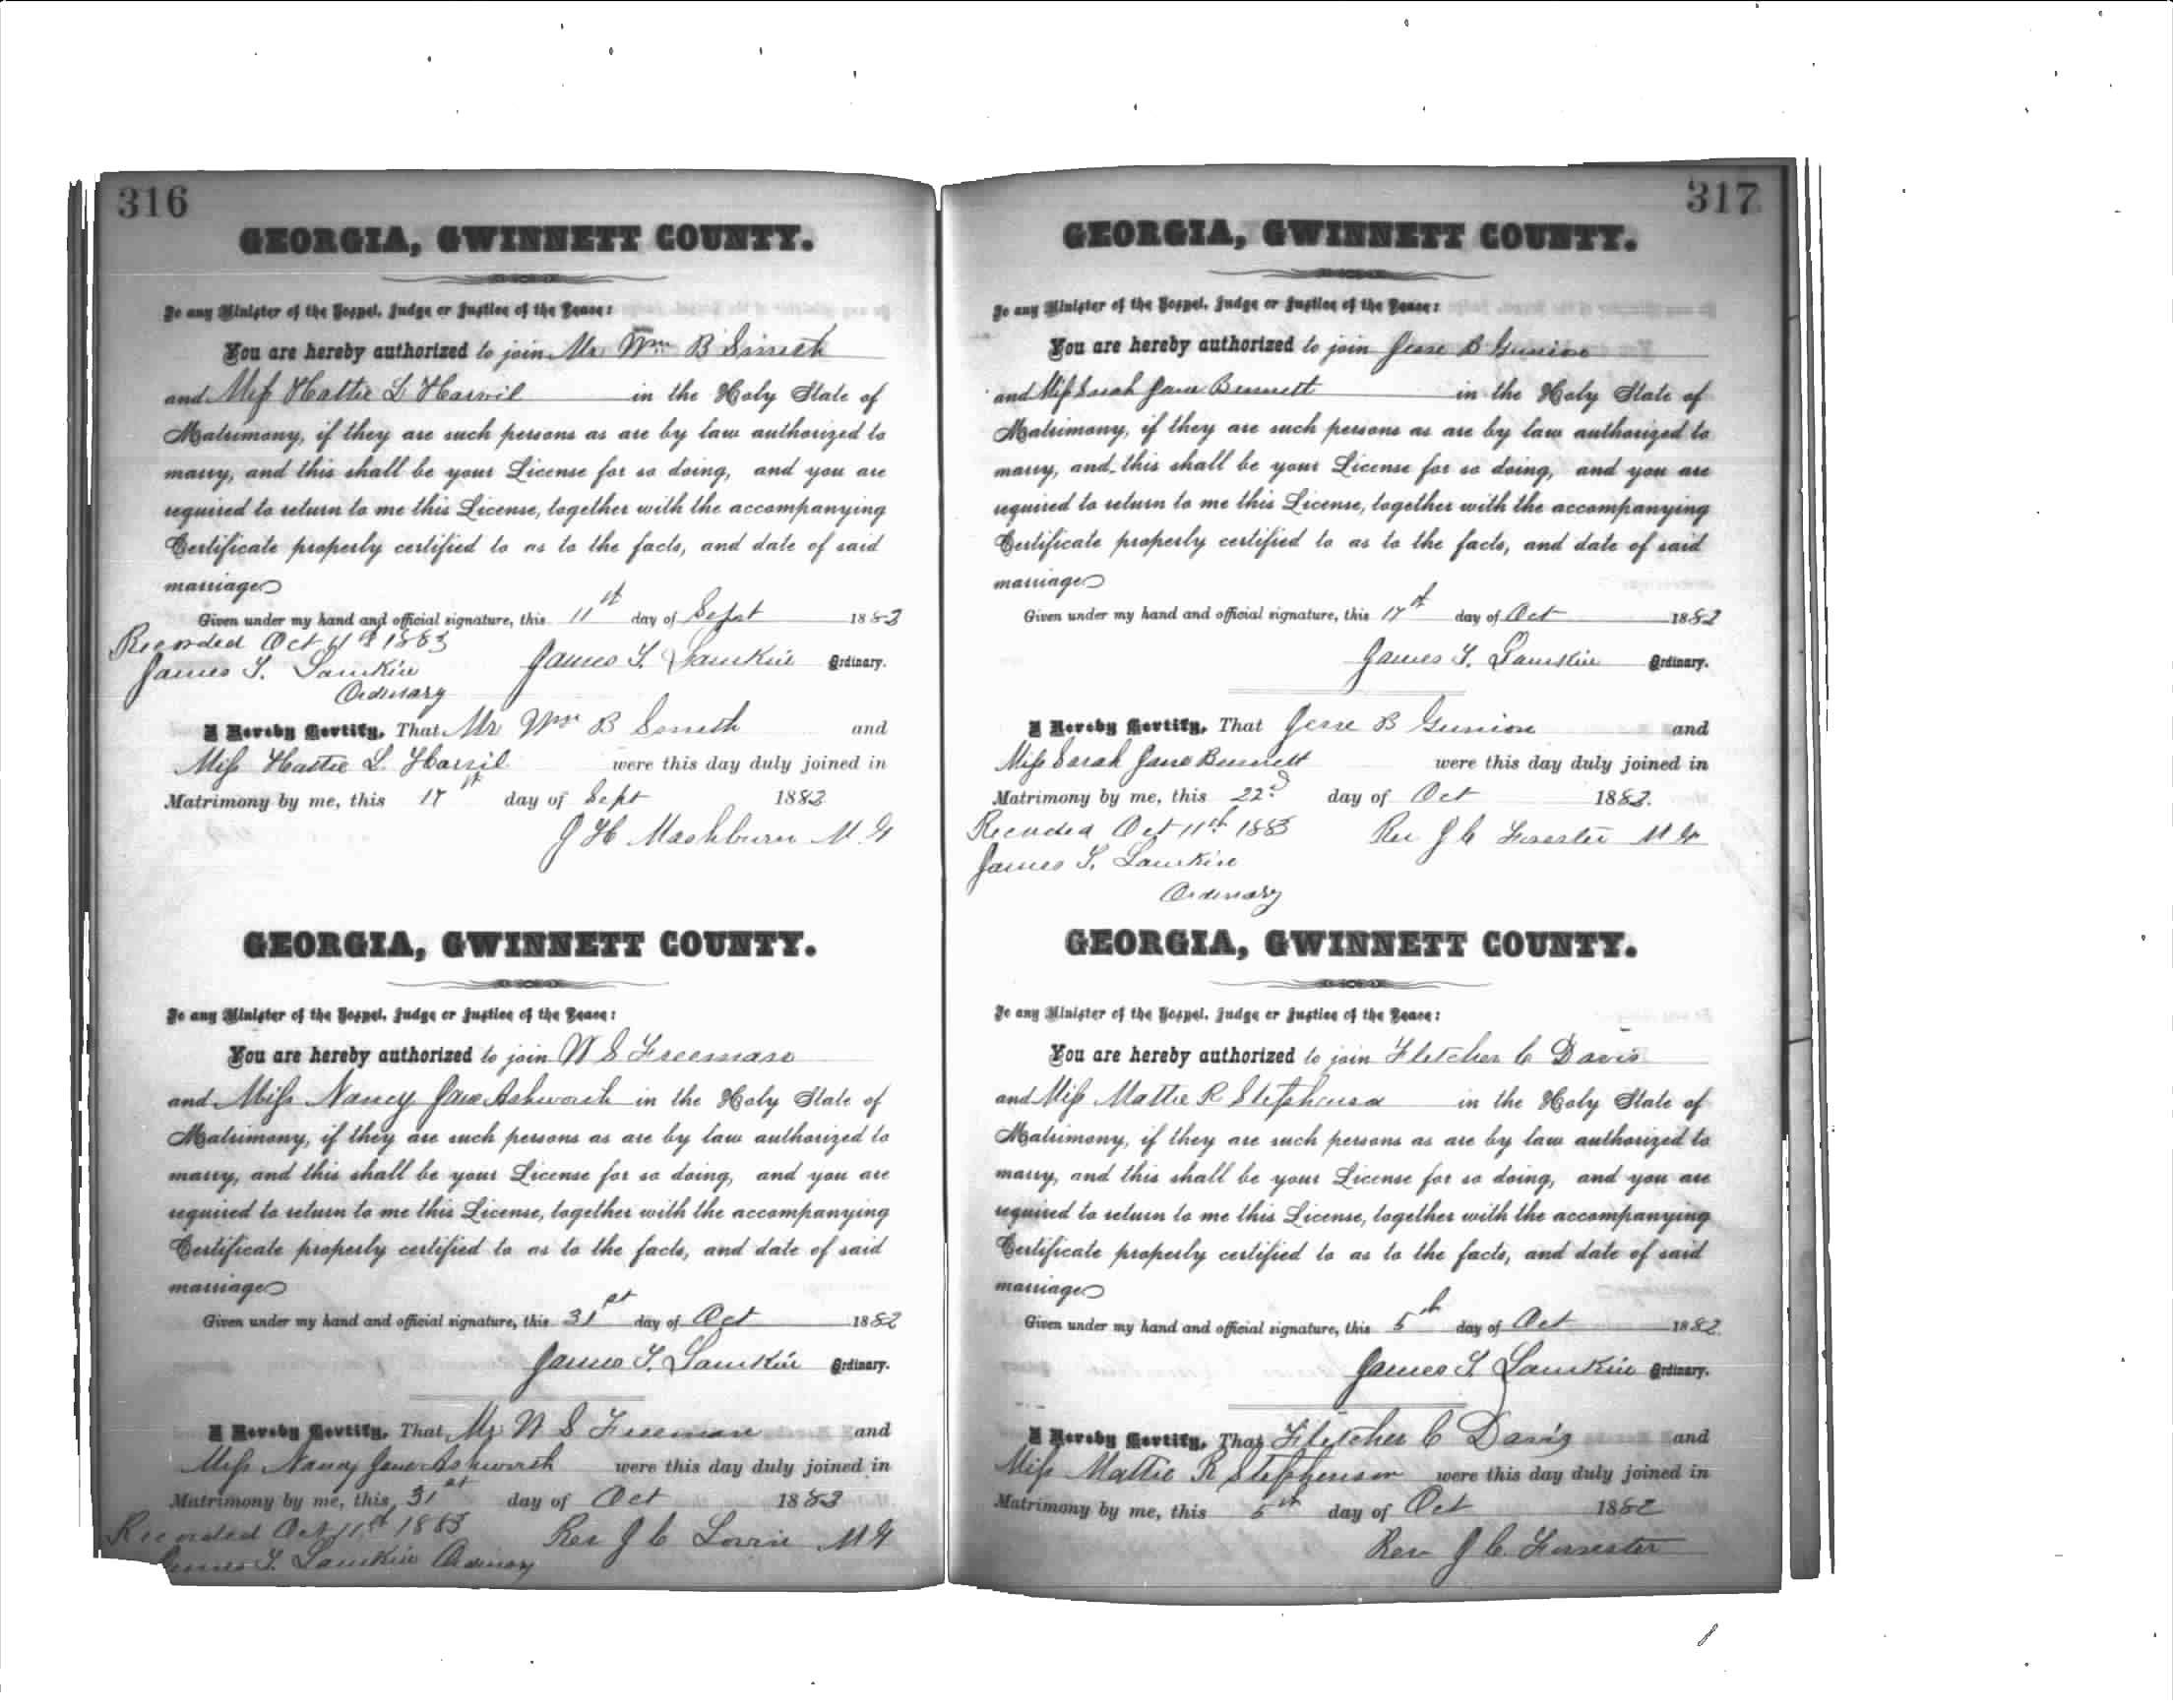 316
GEORGIA, GWINNETT COUNTY.
To any Minister of the Gospel, Judge or Justice of the Peace:
You are hereby authorized to join Mr Wm B Smith
and Miss Hattie L Harril in the Holy State of
Matrimony, if they are such persons as are by law authorized to
marry, and this shall be your License for so doing, and you are
required to return to me this License, together with the accompanying
Certificate properly certified to as to the facts, and date of said
marriage
Given under my hand and official signature, this 11th day of Sept 1883
Recorded Oct 11th 1883
James T. Lamkin James T. Lamkin Ordinary.
Ordinary
I Hereby Certify, That Mr Wm B Smith and
Miss Hattie L. Harril were this day duly joined in
Matrimony by me, this 17th day of Sept 1883
J H Mashburn M. G
GEORGIA, GWINNETT COUNTY.
To any Minister of the Gospel, Judge or Justice of the Peace:
You are hereby authorized to join W S Freeman
and Miss Nancy Jane Ashworth in the Holy State of
Matrimony, if they are such persons as are by law authorized to
marry, and this shall be your License for so doing, and you are
required to return to me this License, together with the accompanying
Certificate properly certified to as to the facts, and date of said
marriage
Given under my hand and official signature, this 31st day of Oct 1882
James T. Lamkin Ordinary.
I Hereby Certify, That Mr W S Freeman and
Miss Nancy Jane Ashworth were this day duly joined in
Matrimony by me, this 31st day of Oct 1883
Recorded Oct 11th 1883 Rev J C M G
James T. Lamkin Ordinary
317
GEORGIA, GWINNETT COUNTY.
To any Minister of the Gospel, Judge or Justice of the Peace:
You are hereby authorized to join Jesse B Gunion
and Miss Sarah Jane Bennett in the Holy State of
Matrimony, if they are such persons as are by law authorized to
marry, and this shall be your License for so doing, and you are
required to return to me this License, together with the accompanying
Certificate properly certified to as to the facts, and date of said
marriage
Given under my hand and official signature, this 17th day of Oct 1882
James T. Lamkin Ordinary.
I Hereby Certify, That Jesse B Gunion and
Miss Sarah Jane Bennett were this day duly joined in
Matrimony by me, this 22d day of Oct 1882.
Recorded Oct 11th 1883 Rev J C Forester M G
James T. Lamkin
Ordinary
GEORGIA, GWINNETT COUNTY.
To any Minister of the Gospel, Judge or Justice of the Peace:
You are hereby authorized to join Fletcher C Davis
and Miss Mattie R Stephenson in the Holy State of
Matrimony, if they are such persons as are by law authorized to
marry, and this shall be your License for so doing, and you are
required to return to me this License, together with the accompanying
Certificate properly certified to as to the facts, and date of said
marriage
Given under my hand and official signature, this 5th day of Oct 1882.
James T. Lamkin Ordinary.
I Hereby Certify, That Fletcher C Davis and
Miss Mattie R Stephenson were this day duly joined in
Matrimony by me, this 5th day of Oct 1882
Rev J C. Forrester